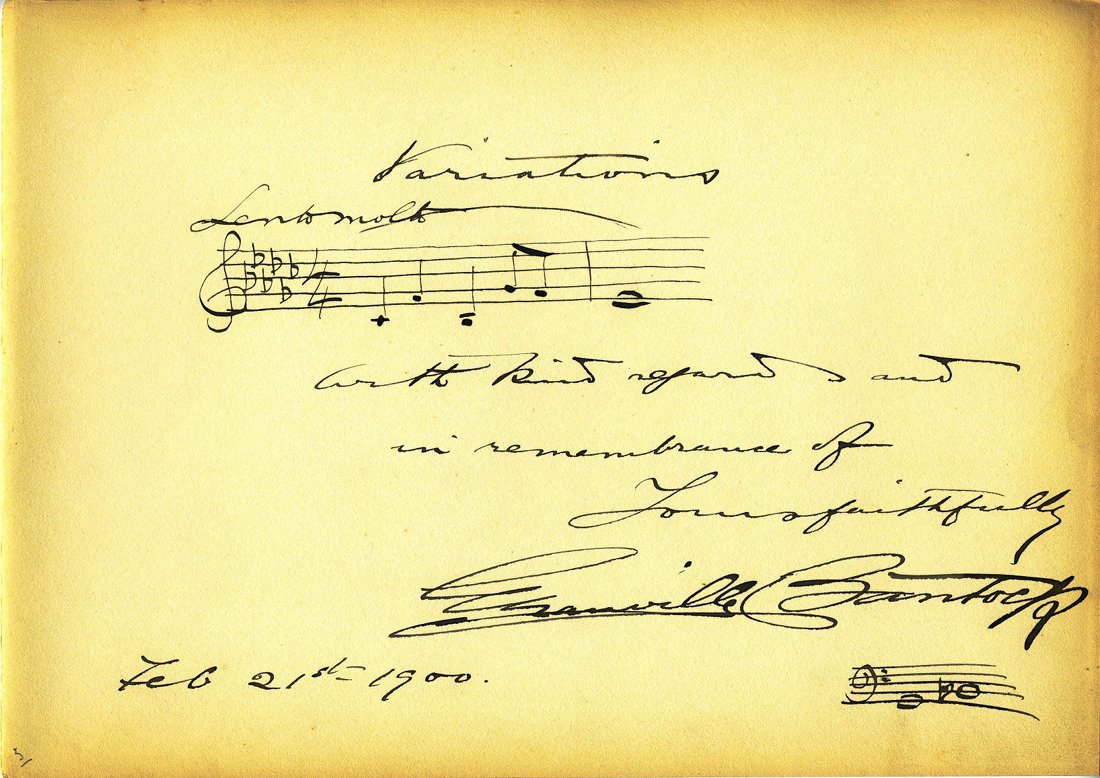 Variations
Lento molto
4/4
with kind regards and
in remembrance of
Yours faithfully
Granville Bantock
Feb 21st 1900.